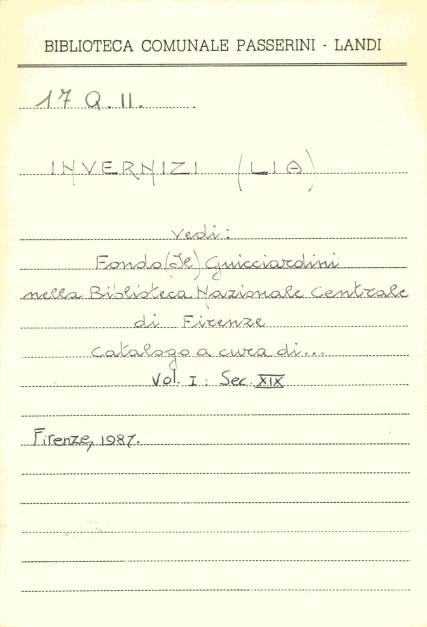 BIBLIOTECA COMUNALE PASSERINI - LANDI
17 Q. II.
INVERNIZI (LIA)
Vedi:
Fondo (Il) Guicciardini
nella Biblioteca Nazionale Centrale
di Firenze
Catalogo a cura di...
Vol. I: Sec. XIX
Firenze, 1987.